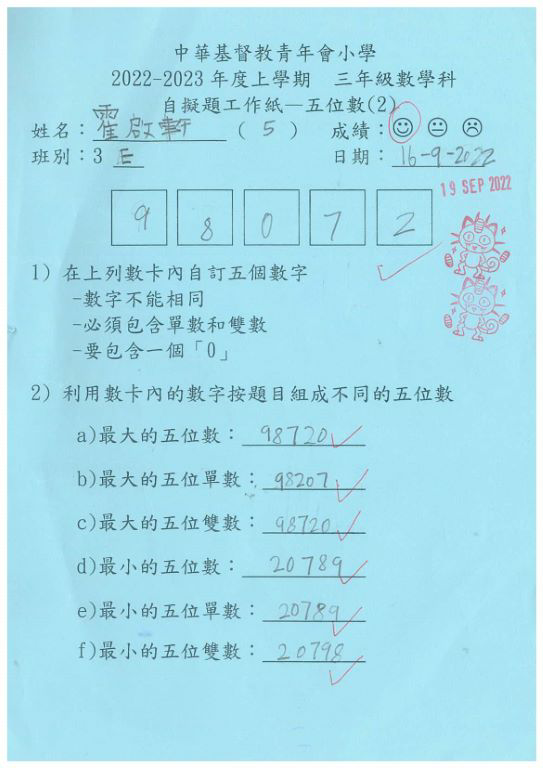 中華基督教青年會小學
2022-2023 年度上學期　三年級數學科
自擬題工作紙—五位數(2)
姓名：霍啟軒 （ 5 ） 成績：
班別：3 E 日期：16-9-2022
19 SEP 2022
9 8 0 7 2
1) 在上列數卡內自訂五個數字
-數字不能相同
-必須包含單數和雙數
-要包含一個「0」
2) 利用數卡內的數字按題目組成不同的五位數
a)最大的五位數：98720
b)最大的五位單數：98207
c)最大的五位雙數：98720
d)最小的五位數：20789
e)最小的五位單數：20789
f)最小的五位雙數：20798